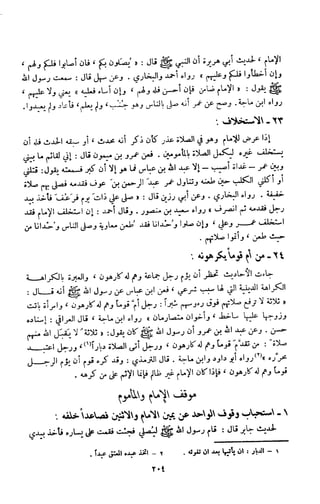 الإمام ، لحديث أبي هريرة أن النبي ﷺ قال : « يصلون بكم ، فان أصابوا فلكم ولهم ،
وإن أخطأوا فلكم وعليهم » رواه أحمد والبخاري . وعن سهل قال : سمعت رسول الله
ﷺ يقول : « الإمام ضامن فإن أحسن فله ولهم ، وإن أساء فعليه » يعني ولا عليهم ،
رواه ابن ماجة . وصح عن عمر أنه صلى بالناس وهو جنب ، ولم يعلم ، فأعاد ولم يعيدوا .
٢٣ - الاستخلاف :
إذا عرض للإمام وهو في الصلاة عذر كأن ذكر أنه محدث ، أو سبقه الحدث فله أن
يستخلف غيره ليكمل الصلاة بالمأمومين . فعن عمرو بن ميمون قال : إني لقائم ما بيني
وبين عمر - غداة أصيب - إلا عبد الله بن عباس فما هو إلا أن كبر فسمعته يقول : قتلني
أو أكلني الكلب حين طعنه وتناول عمر عبد الرحمن بن عوف فقدمه فصلى بهم صلاة
خفيفة . رواه البخاري . وعن أبي رزين قال : صلى علي ذات يوم فرعف فأخذ بيد
رجل فقدمه ثم انصرف » رواه سعيد بن منصور . وقال أحمد : إن استخلف الإمام فقد
استخلف عمر وعلي ، وإن صلوا وحدانا فقد طعن معاوية وصلى الناس وحدانا من
حيث طعن ، وأتموا صلاتهم .
٢٤ - من أم قوماً يكرهونه :
جاءت الأحاديث تحظر أن يؤم رجل جماعة وهم له كارهون ، والعبرة بالكراهة
الكراهة الدينية التي لها سبب شرعي ، فعن ابن عباس عن رسول الله ﷺ أنه قال :
« ثلاثة لا ترفع صلاتهم فوق رءوسهم شبراً : رجل أم قوماً وهم له كارهون ، وامرأة باتت
وزوجها عليها ساخط ، وأخوان متصارمان » رواه ابن ماجة . قال العراقي : إسناده
حسن . وعن عبد الله بن عمرو أن رسول الله ﷺ كان يقول : « ثلاثة لا يقبل الله منهم
صلاة : من تقدم قوماً وهم له كارهون ، ورجل أتى الصلاة دباراً (١) ، ورجل اعتبد
محرره » (٢) رواه أبو داود وابن ماجة . قال الترمذي : وقد كره قوم أن يؤم الرجل
قوماً وهم له كارهون ، فإذا كان الإمام غير ظالم فإنما الإثم على من كرهه .
موقف الإمام والمأموم
١ - استحباب وقوف الواحد عن يمين الإمام والاثنين فصاعداً خلفه :
لحديث جابر قال : قام رسول الله ﷺ ليصلي فجئت فقمت على يساره فأخذ بيدي
١ - الدبار : ان يأتيها بعد ان تفوته . ٢ - اتخذ عبده المعتق عبداً .
٢٠٤